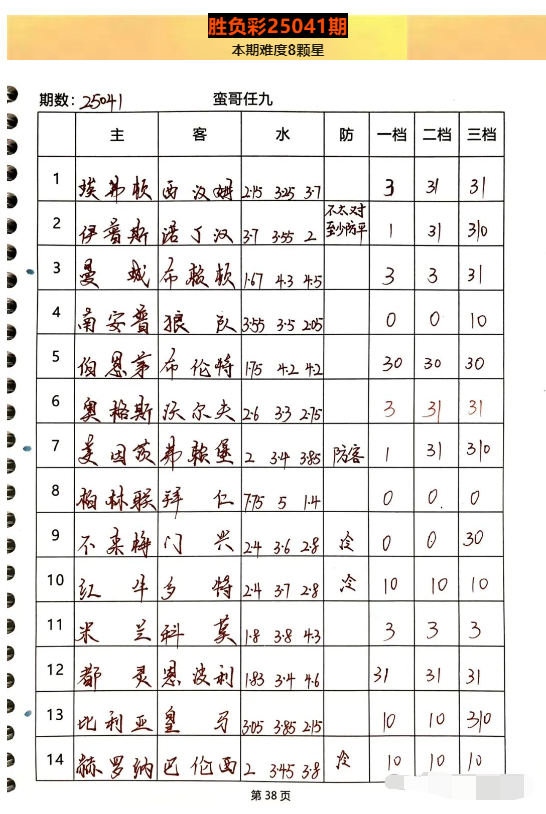 胜负彩25041期
本期难度8颗星
期数: 25041 蛮哥任九
主 客 水 防 一档 二档 三档
1 埃弗顿 西汉姆 2.15 3.25 3.7 3 31 31
2 伊普斯 诺丁汉 3.7 3.55 2 不太对 至少防平 1 31 310
3 曼城 布赖顿 1.67 4.3 4.5 3 3 31
4 南安普 狼队 3.55 3.5 2.05 0 0 10
5 伯恩茅 布伦特 1.75 4.2 4.2 30 30 30
6 奥格斯 沃尔夫 2.6 3.3 2.75 3 31 31
7 美因茨 弗赖堡 2 3.4 3.85 防客 1 31 310
8 柏林联 拜仁 7.75 5 1.4 0 0. 0
9 不来梅 门兴 2.4 3.6 2.8 冷 0 0 30
10 红牛 多特 2.4 3.7 2.8 冷 10 10 10
11 米兰 科莫 1.8 3.8 4.3 3 3 3
12 都灵 恩波利 1.83 3.4 4.6 31 31 31
13 比利亚 皇马 3.05 3.85 2.15 10 10 310
14 赫罗纳 巴伦西 2 3.45 3.8 冷 10 10 10
第 38 页